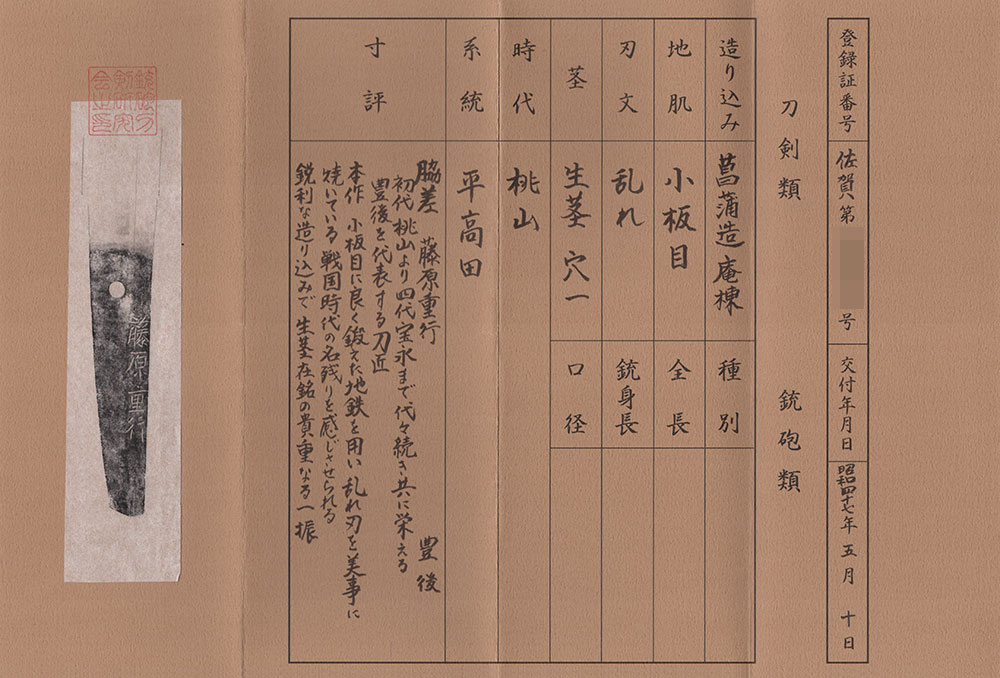 登録証番号 佐賀第 号 交付年月日 昭和四十七年 五月 十日
刀剣類 銃砲類
造り込み 菖蒲造庵棟 種別
地肌 小板目 全長
刃文 乱れ 銃身長
茎 生茎 穴一 口径
時代 桃山
系統 平高田
寸評
脇差 藤原重行 豊後
初代 桃山より四代宝永まで、代々続き共に栄える
豊後を代表する刀匠
本作 小板目に良く鍛えた地鉄を用い 乱れ刃を美事に
焼いている 戦国時代の名残りを感じさせられる
鋭利な造り込みで 生茎在銘の貴重なる一振
藤原重行